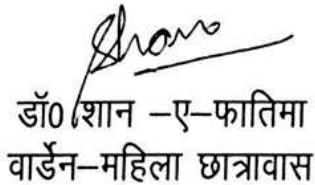 Shano
डॉ0 शान –ए–फातिमा
वार्डेन–महिला छात्रावास